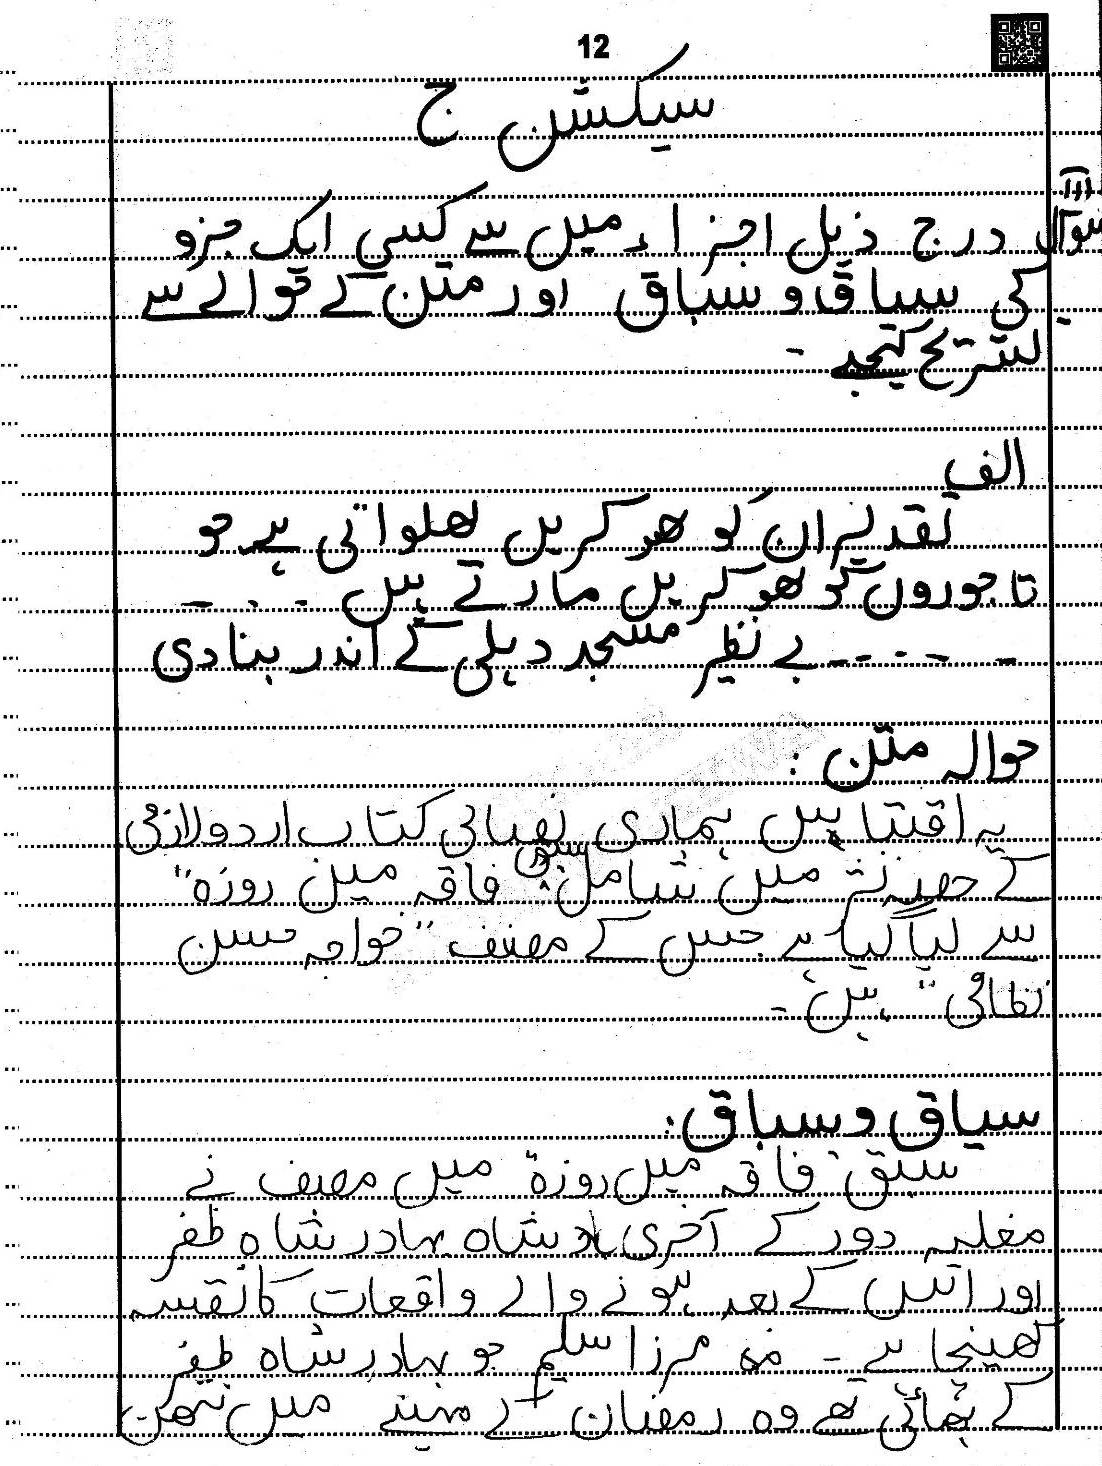 12
سیکشن ج
سوال درج ذیل اجزاء میں سے کسی ایک جزو
کی سیاق و سباق اور متن کے حوالے سے
تشریح کیجیے ۔
الف
تقدیر ان کو ٹھوکریں کھلواتی ہے جو
تاجوروں کو ٹھوکریں مارتے ہیں ۔ ۔ ۔ ۔
۔ ۔ ۔ ۔ ۔ ۔ بے نظیر مسجد دہلی کے اندر بنادی
حوالہ متن :
یہ اقتباس ہماری نصابی کتاب اردو لازمی
کے حصہ نثر میں شامل سبق "فاقہ میں روزہ"
سے لیا گیا ہے جس کے مصنف "خواجہ حسن
نظامی" ہیں ۔
سیاق و سباق :
سبق "فاقہ میں روزہ" میں مصنف نے
مغلیہ دور کے آخری بادشاہ بہادر شاہ ظفر
اور اس کے بعد ہونے والے واقعات کا نقشہ
کھینچا ہے ۔ مرزا سلیم جو بہادر شاہ ظفر
کے بھائی تھے وہ رمضان کے مہینے میں